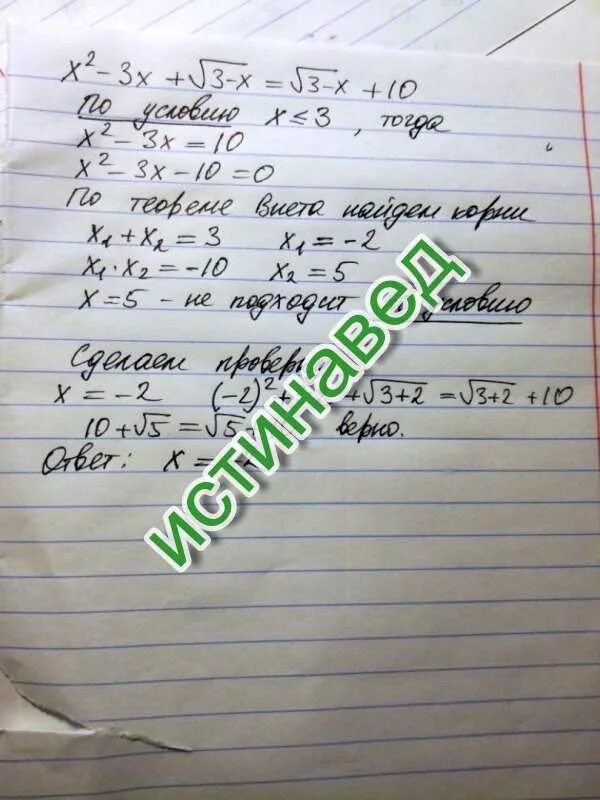 x² - 3x + √3-x = √3-x + 10
По условию x ≤ 3, тогда
x² - 3x = 10
x² - 3x - 10 = 0
По теореме Виета найдем корни
x₁ + x₂ = 3 x₁ = -2
x₁ · x₂ = -10 x₂ = 5
x = 5 - не подходит условию
Сделаем
x = -2 (-2)² + +√3+2 = √3+2 + 10
10 + √5 = √5 верно.
Ответ: x =
ИСТИНАВЕД